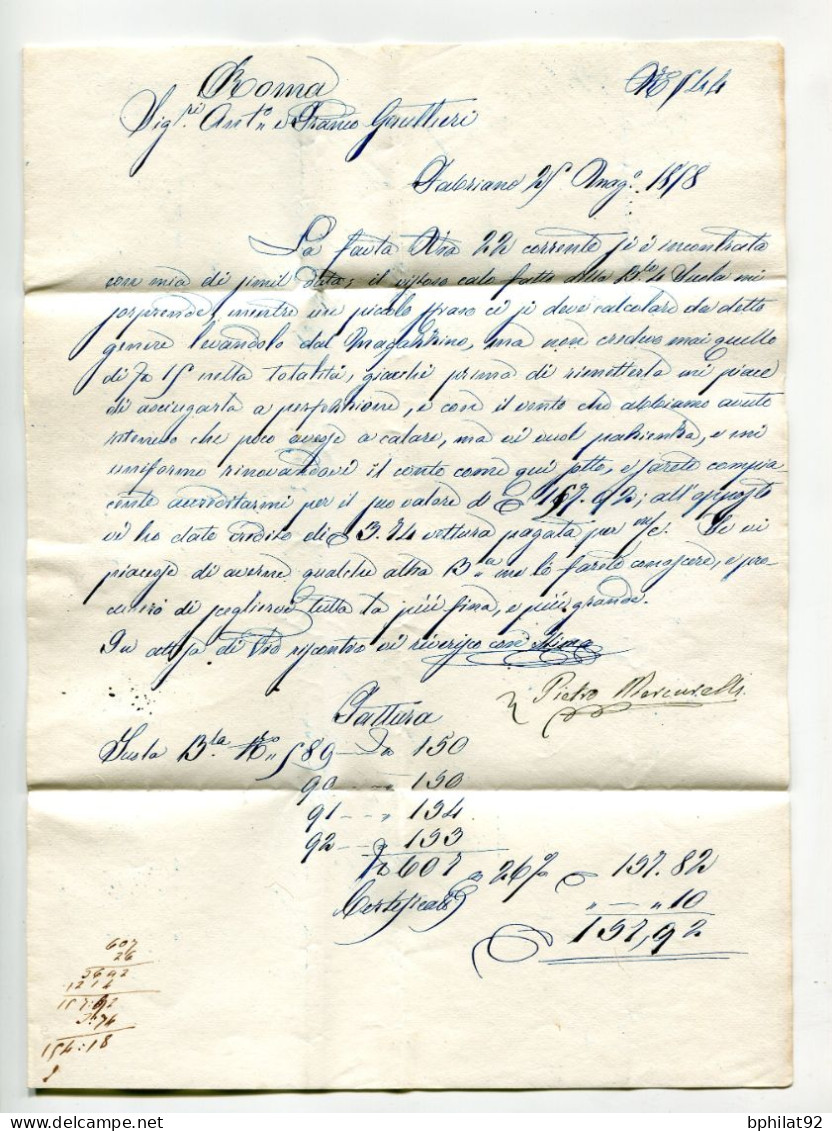 Roma
Nº 544
Sigri Anto e Franco Gualtieri
Fabriano 25 Magº 1858
La fatta Vra 22 corrente si è incontrata
con mia di simil data; il vistoso calo fatto dalla B.te 4 Suola mi
sorprende, mentre un piccolo sfraso ci si deve calcolare da detto
genere levandolo dal Magazzino, ma non credevo mai quello
di 15 nella totalità, giacchè prima di rimetterla mi piace
di asciugarla a perfezzione, e con il vento che abbiamo avuto
ritenevo che poco avesse a calare, ma vi vuol pazienza, e mi
uniformo rinovandovi il conto come qui sotto, e sarete compia-
cente accreditarmi per il suo valore d 157.92; all'opposto
vi ho dato credito di 3.74 vettura pagata per m/c. Se vi
piacesse di averne qualche altra B.a me lo farete conoscere, e pro-
curerò di scegliervi tutta la più fina, e più grande.
In attesa di Vro riscontro vi riverisco con stima
Pietro Mercurelli
Fattura
Suola B.ta Nº 589 — 150
90 — 150
91 — „ 154
92 — „ 153
607 a 26 % 157.82
Certificato „ — „ 10
157,92
607
26
3642
1214
157:82
3:74
154:18